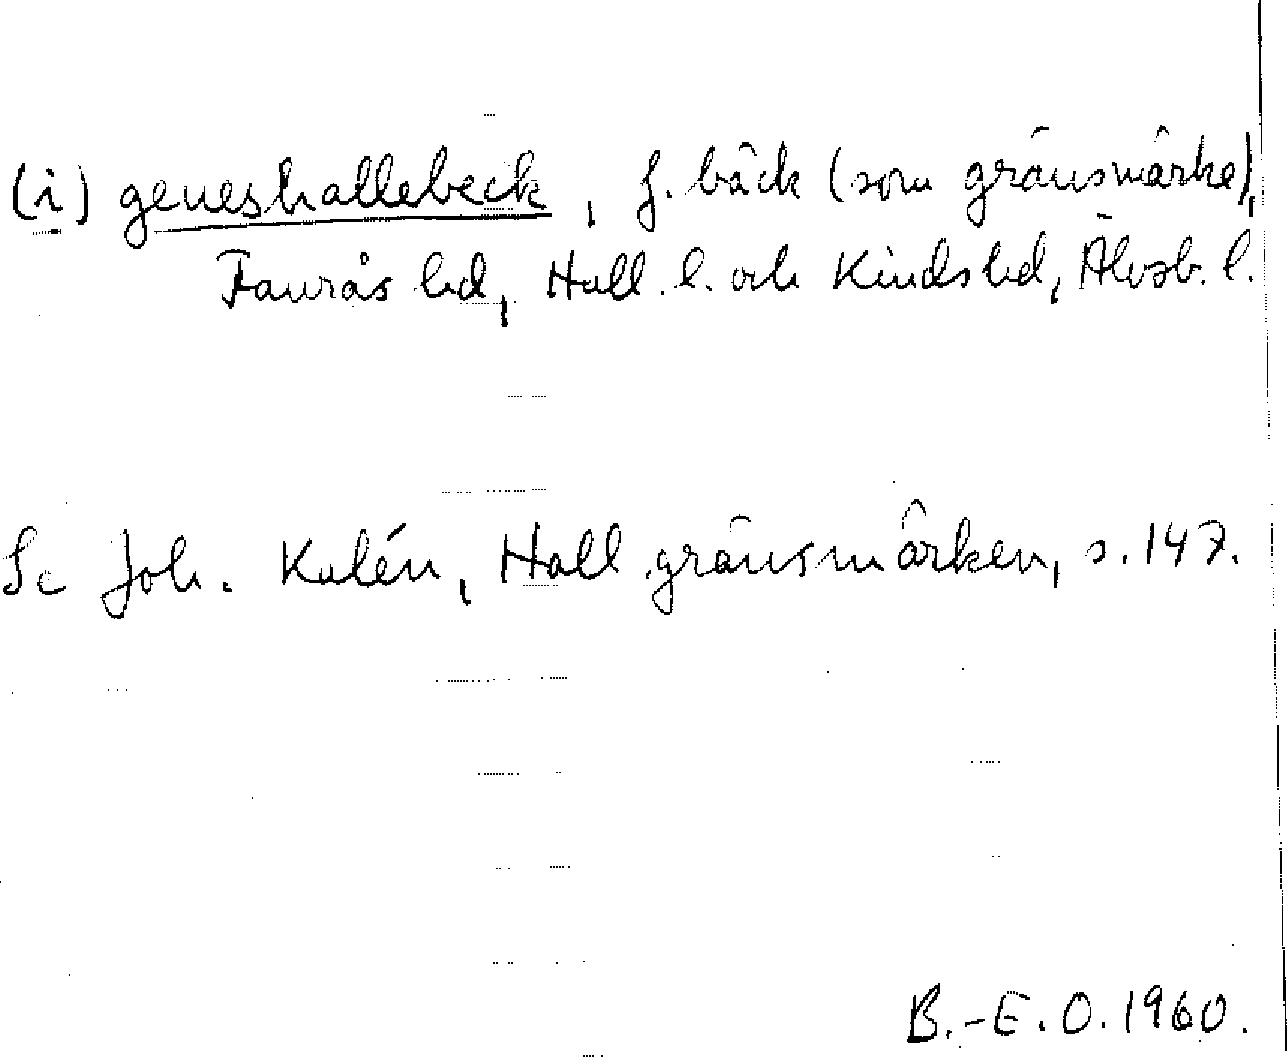 (i) geneshallebeck, f. bäck (som gränsmärke),
Faurås hd, Hall. l. och Kinds hd, Älvsb. l.
Se Joh. Kalén, Hall gränsmärken, s. 147.
B.-E. O. 1960.